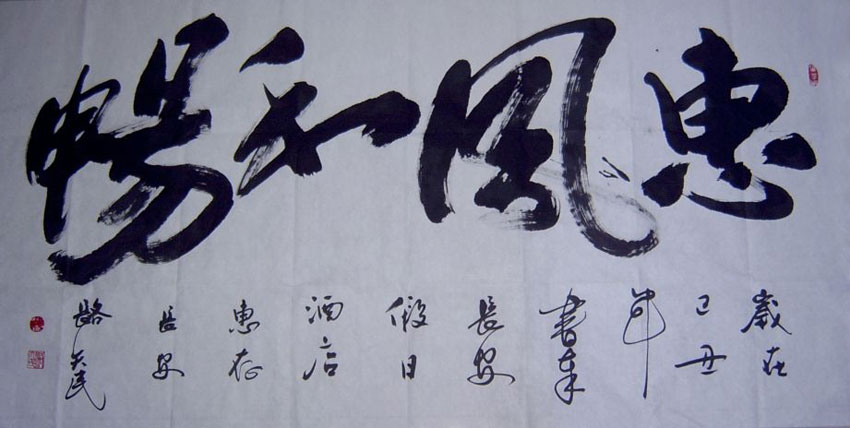 惠風和暢
歲在
己丑
年
書奉
長安
假日
酒店
惠存
長安
路天民